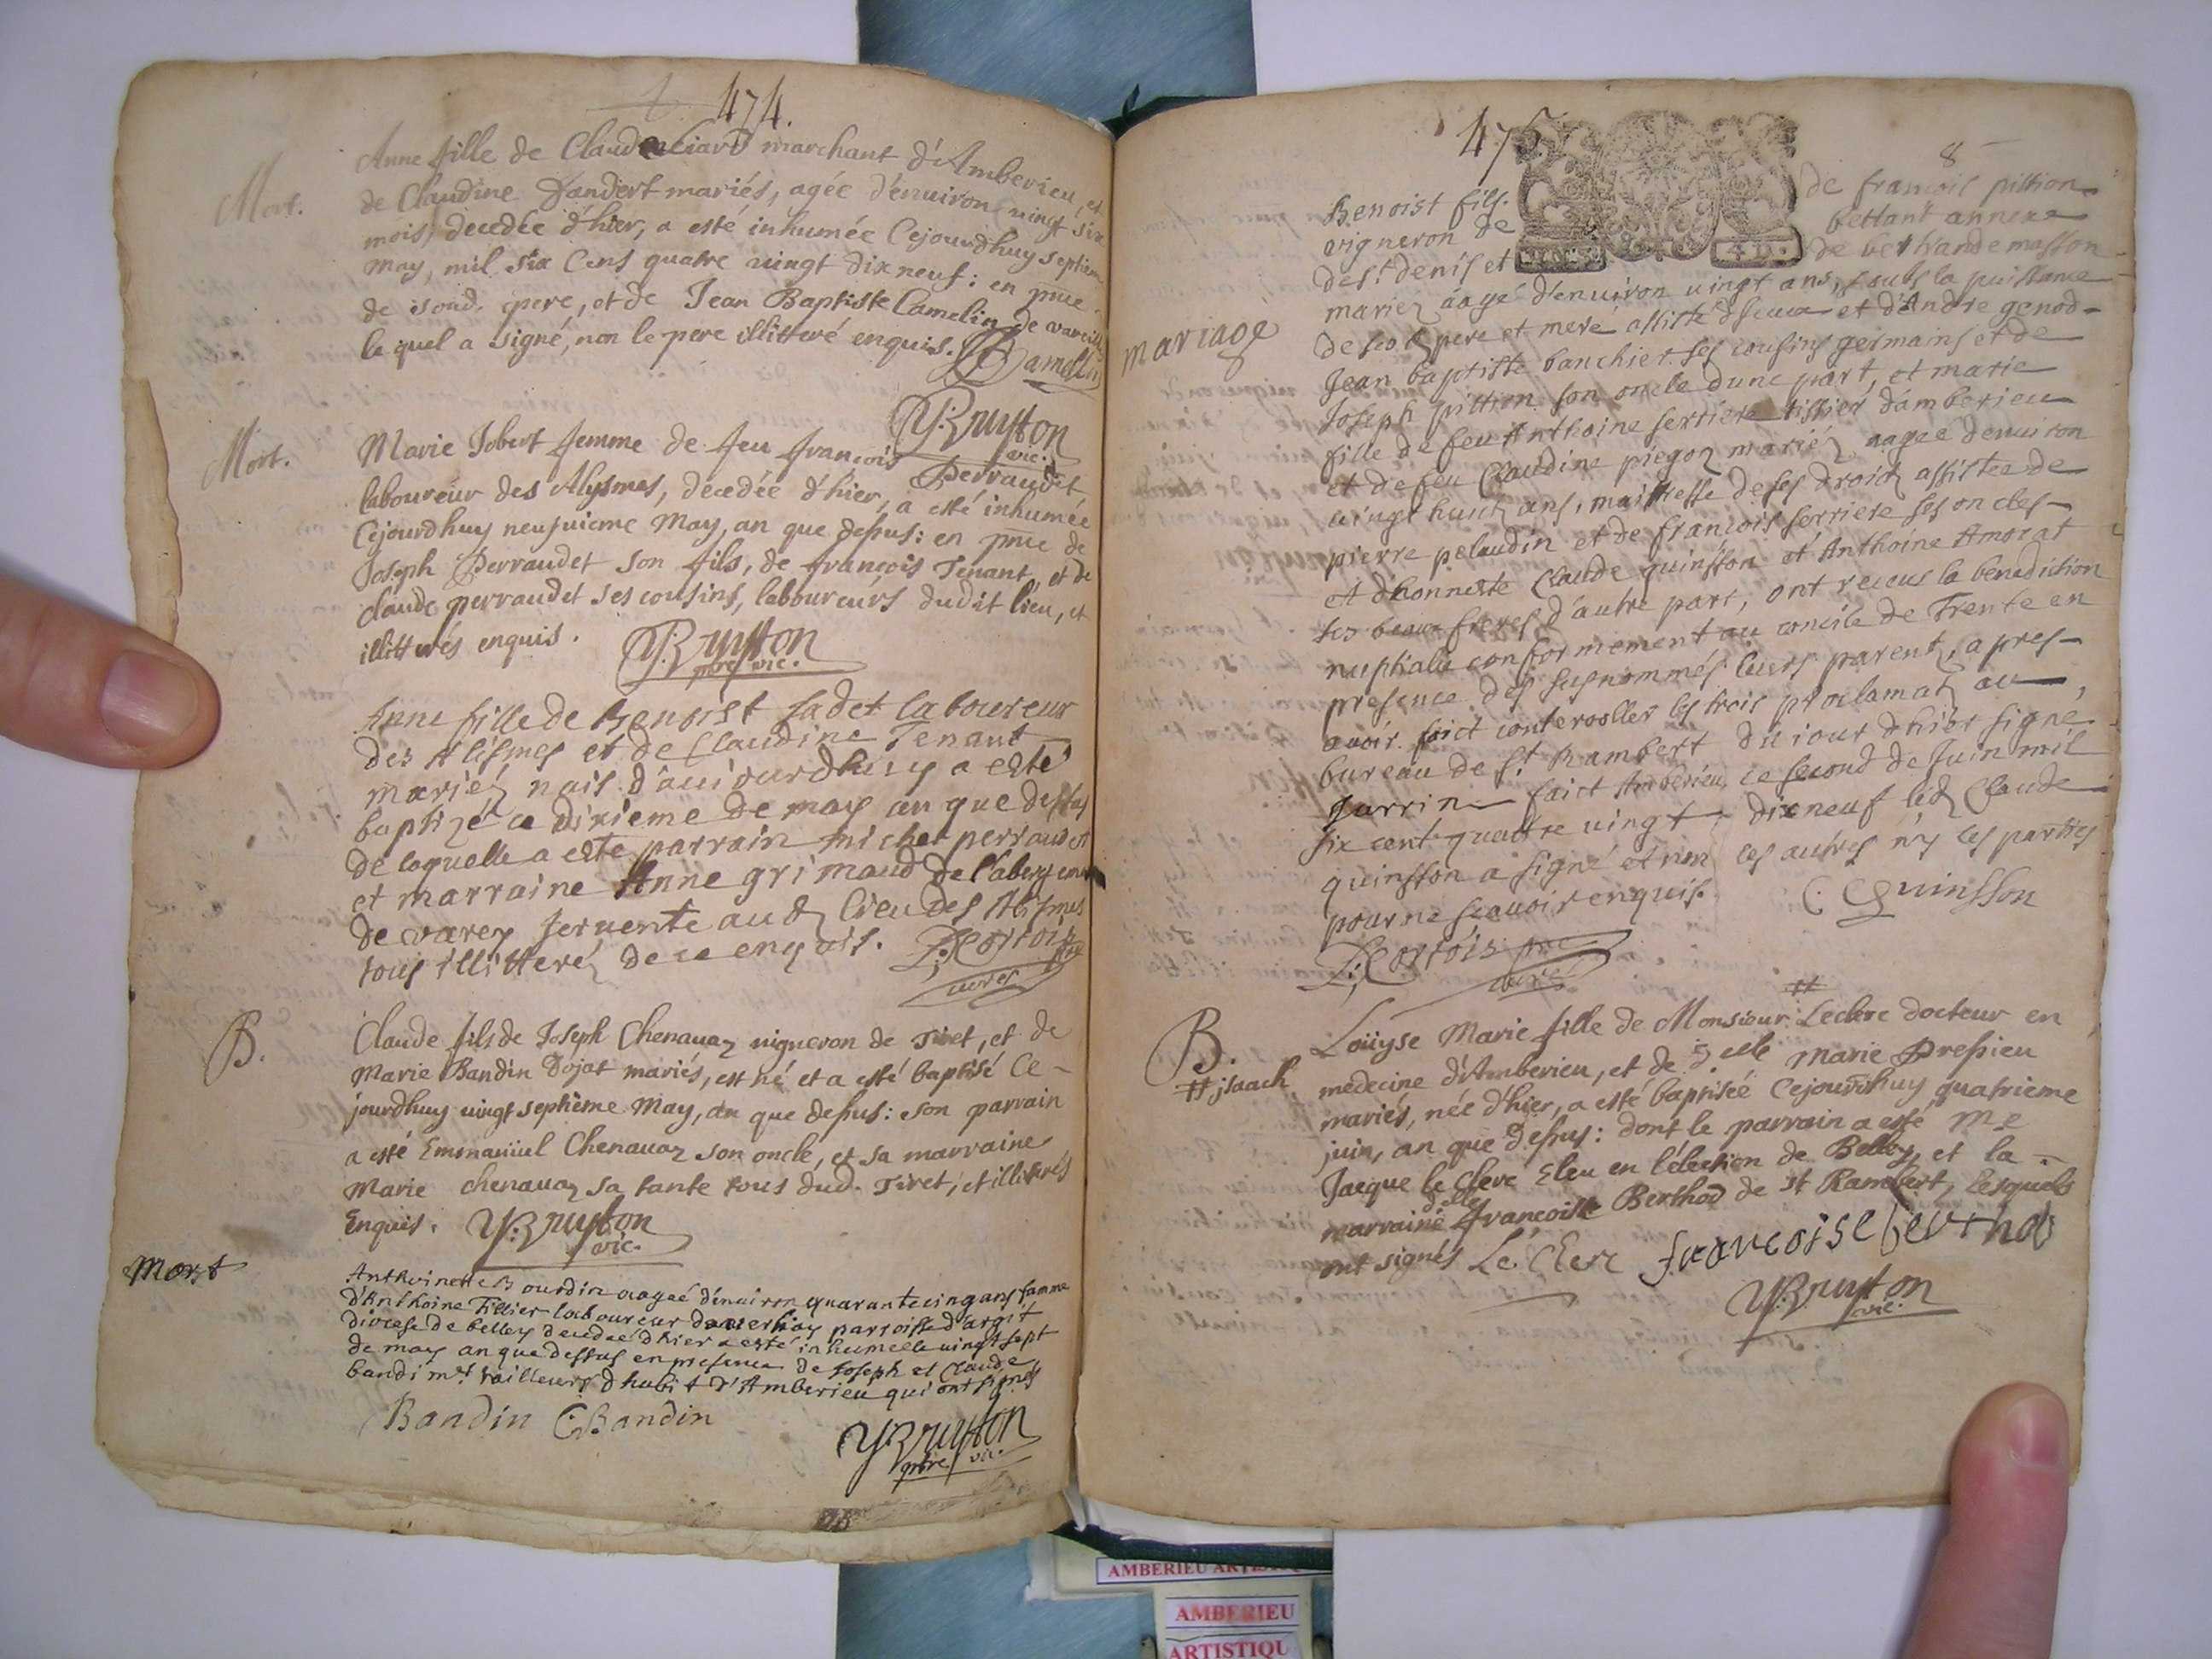 474.
Mort.
Anne fille de Claude Liard marchant d'Amberieu, et
de Claudine Dandert mariés, agée d'enuiron uingt six
mois, decedée d'hier, a esté inhumée Cejourdhuy septiem
May, mil six Cens quatre uingt dix neuf: en pnce
de sond. pere, et de Jean Baptiste Camelin de vareille
lequel a signé, non le pere illitteré enquis. Camelin
Bruyson
vic.
Mort.
Marie Jobert femme de feu françois Perraudet
laboureur des Alysmes, décedée d'hier, a esté inhumée
Cejourdhuy neufuieme May, an que dessus: en pnce de
Joseph Perraudet son fils, de françois Tenant, et de
claude perraudet ses cousins, laboureurs dudit lieu, et
illitterés enquis. Bruyson
pbre vic.
Anne fille de Benoist fadet laboureur
des Alismes et de Claudine Tenant
mariéz nais d'auiourdhuy a esté
baptizé ce dixieme de may an que dessus
de laquelle a este parrain michel perraudet
et marraine Anne grimaud de l'abergement
de varey seruente aud lieu des Alismes
tous illitteréz de ce enquis. Cortois
B.
Claude fils de Joseph Chenauaz uigneron de Tiret, et de
Marie Bandin Dojat mariés, est né et a esté baptisé Ce-
jourdhuy uingt septième May, an que dessus: son parrain
a esté Emmanüel Chenauaz son oncle, et sa marraine
Marie chenauaz sa tante tous dud. Tiret, et illiterés
Enquis. Bruyson
vic.
Mort
Anthoinette Bourdin aageé d'enuiron quarante cinq ans famme
d'Anthoine Tillier laboureur parroisse d'argit
diocese de belley decedeé dhier a esté inhumeé le uingt sept
de may an que dessus en presence de Joseph et Claude
bandi mes tailleurs dhabit d'Amberieu qui ont signés
Bandin C Bandin
Bruyson
pbre vic.
475
8
mariage
Benoist fils de francois pittion
vigneron de bettant annexe
de st denis et de masson
mariez aagé d'enuiron uingt ans, soubs la puissance
de sesd pere et mere assisté d'iceux et d'Andre genod
Jean baptiste banchiet ses cousins germains et de
Joseph pittion son oncle dune part, et marie
fille de feu Anthoine serriere tissier d'amberieu
et de feu Claudine piegoz mariéz aageé denuiron
uingt huict ans, maistresse de ses droictz assistée de
pierre pelaudin et de francois serriere ses oncles
et d'honneste Claude quinsson et Anthoine Amorat
ses beaux freres d'autre part, ont receus la benediction
nuptiale conformement au concile de Trente en
presence des susnommés leurs parents, apres
auoir faict conteroller les trois proclamatz au
bureau de st Rambert du iour dhier signé
Jarrin faict Amberieu ce second de Juin mil
six cent quattre uingt dix neuf led Claude
quinsson a signé et non les autres n'y les parties
pour ne scauoir enquis.
C Quinsson
Cortois
B.
# jsaack
#
Loüyse Marie fille de Monsieur Leclerc docteur en
medecine d'Amberieu, et de delle Marie Dressieu
mariés, née d'hier, a esté baptisée Cejourdhuy quatrieme
juin, an que dessus: dont le parrain a esté Me
Jacque le Clerc Eleu en l'élection de Belley, et la
marraine delle francoise Berthod de st Rambert, lesquels
ont signés Le Clerc francoise berthod
Bruyson
vic.
AMBERIEU ARTISTIQU
AMBERIEU
ARTISTIQU